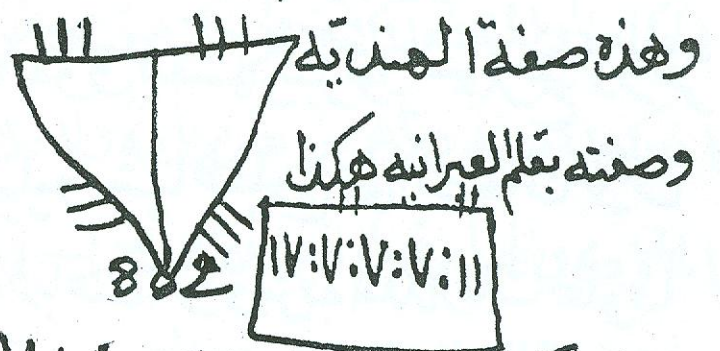 وهذه صفة الهنديّه
وصفته بقلم العبرانيه هكذا
١٧:٧:٧:٧:١١